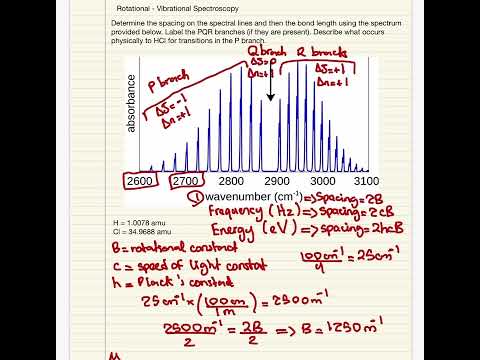 Rotational - Vibrational Spectroscopy
Determine the spacing on the spectral lines and then the bond length using the spectrum
provided below. Label the PQR branches (if they are present). Describe what occurs
physically to HCl for transitions in the P branch.
Q branch
ΔJ=0
Δn=+1
R branch
ΔJ=+1
Δn=+1
P branch
ΔJ=-1
Δn=+1
absorbance
2600 2700 2800 2900 3000 3100
① wavenumber (cm⁻¹) => Spacing=2B
Frequency (Hz) => spacing = 2cB
Energy (eV) => spacing = 2hcB
H = 1.0078 amu
Cl = 34.9688 amu
B = rotational constant
c = speed of light constant
h = Planck's constant
100cm⁻¹/4 = 25cm⁻¹
25cm⁻¹ × (100cm/1m) = 2500m⁻¹
2500m⁻¹/2 = 2B/2 => B = 1250m⁻¹